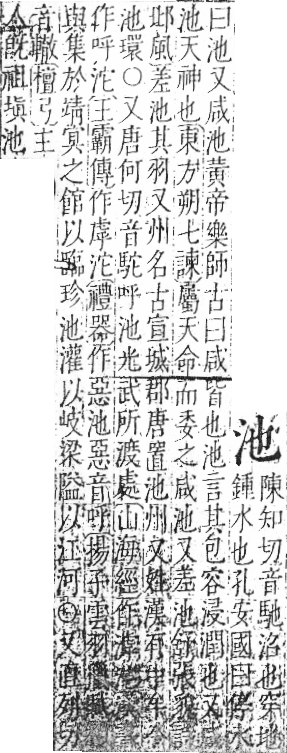 池
陳知切音馳沼也穿地
鍾水也孔安國曰停水
曰池又咸池黃帝樂師古曰咸皆也池言其包容浸潤也又咸
池天神也東方朔七諫屬天命而委之咸池又差池舒張貌詩
邶風差池其羽又州名古宣城郡唐置池州又姓漢有中牟
池環○又唐何切音駝呼池光武所渡處山海經作
作呼沱王霸傳作虖沱禮器作惡池惡音呼揚子雲羽獵賦
與集於靖冥之館以臨珍池灌以岐梁隘以江河○又直列切
音轍檀弓主
人既祖塡池